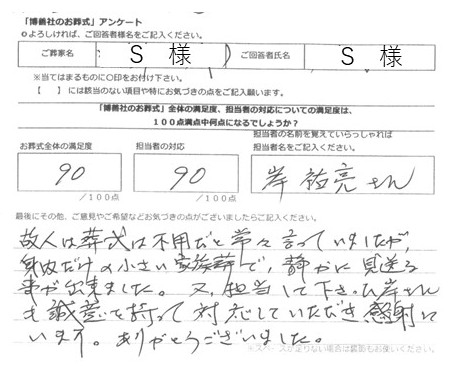 「博善社のお葬式」アンケート
○よろしければ、ご回答者様名をご記入ください。
ご葬家名 S 様 ご回答者氏名 S 様
※当てはまるものに○印をお付け下さい。
【 】には該当のない項目や特にお気づきの点をご記入願います。
「博善社のお葬式」全体の満足度、担当者の対応についての満足度は、
100点満点中何点になるでしょうか?
お葬式全体の満足度 担当者の対応
担当者の名前を覚えていらっしゃれば
担当者名をご記入ください。
90 90 岸 祐亮さん
/100点 /100点
最後にその他、ご意見やご希望などお気づきの点がございましたらご記入ください。
故人は葬式は不用だと常々言っていましたが、
身内だけの小さい家族葬で、静かに見送る
事が出来ました。又、担当して下さった岸さん
も誠意を持って対応していただき感謝して
います。ありがとうございました。
※スペースが足りない場合は裏面もお使いください。